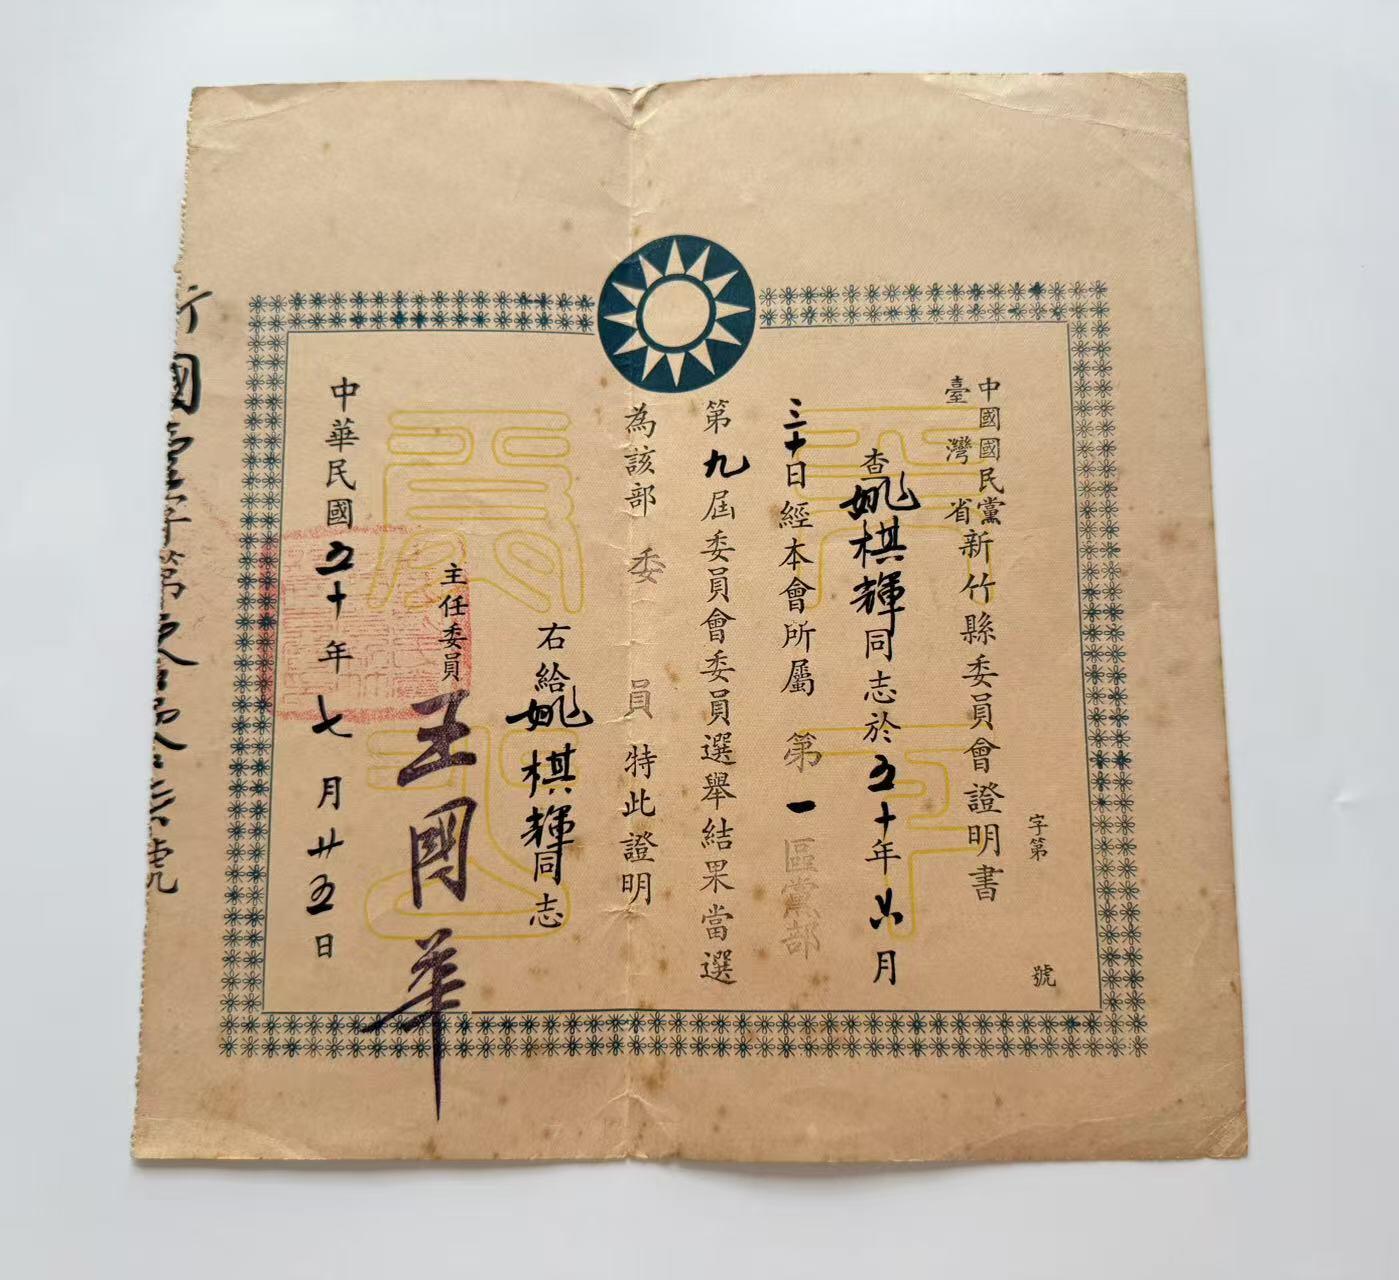 中國國民黨
臺灣省新竹縣委員會證明書
字第 號
查姚棋輝同志於五十年六月
三十日經本會所屬第一區黨部
第九屆委員會委員選舉結果當選
為該部委員特此證明
右給姚棋輝同志
主任委員王國華
中華民國五十年七月廿五日
國 字第 號
天下為公